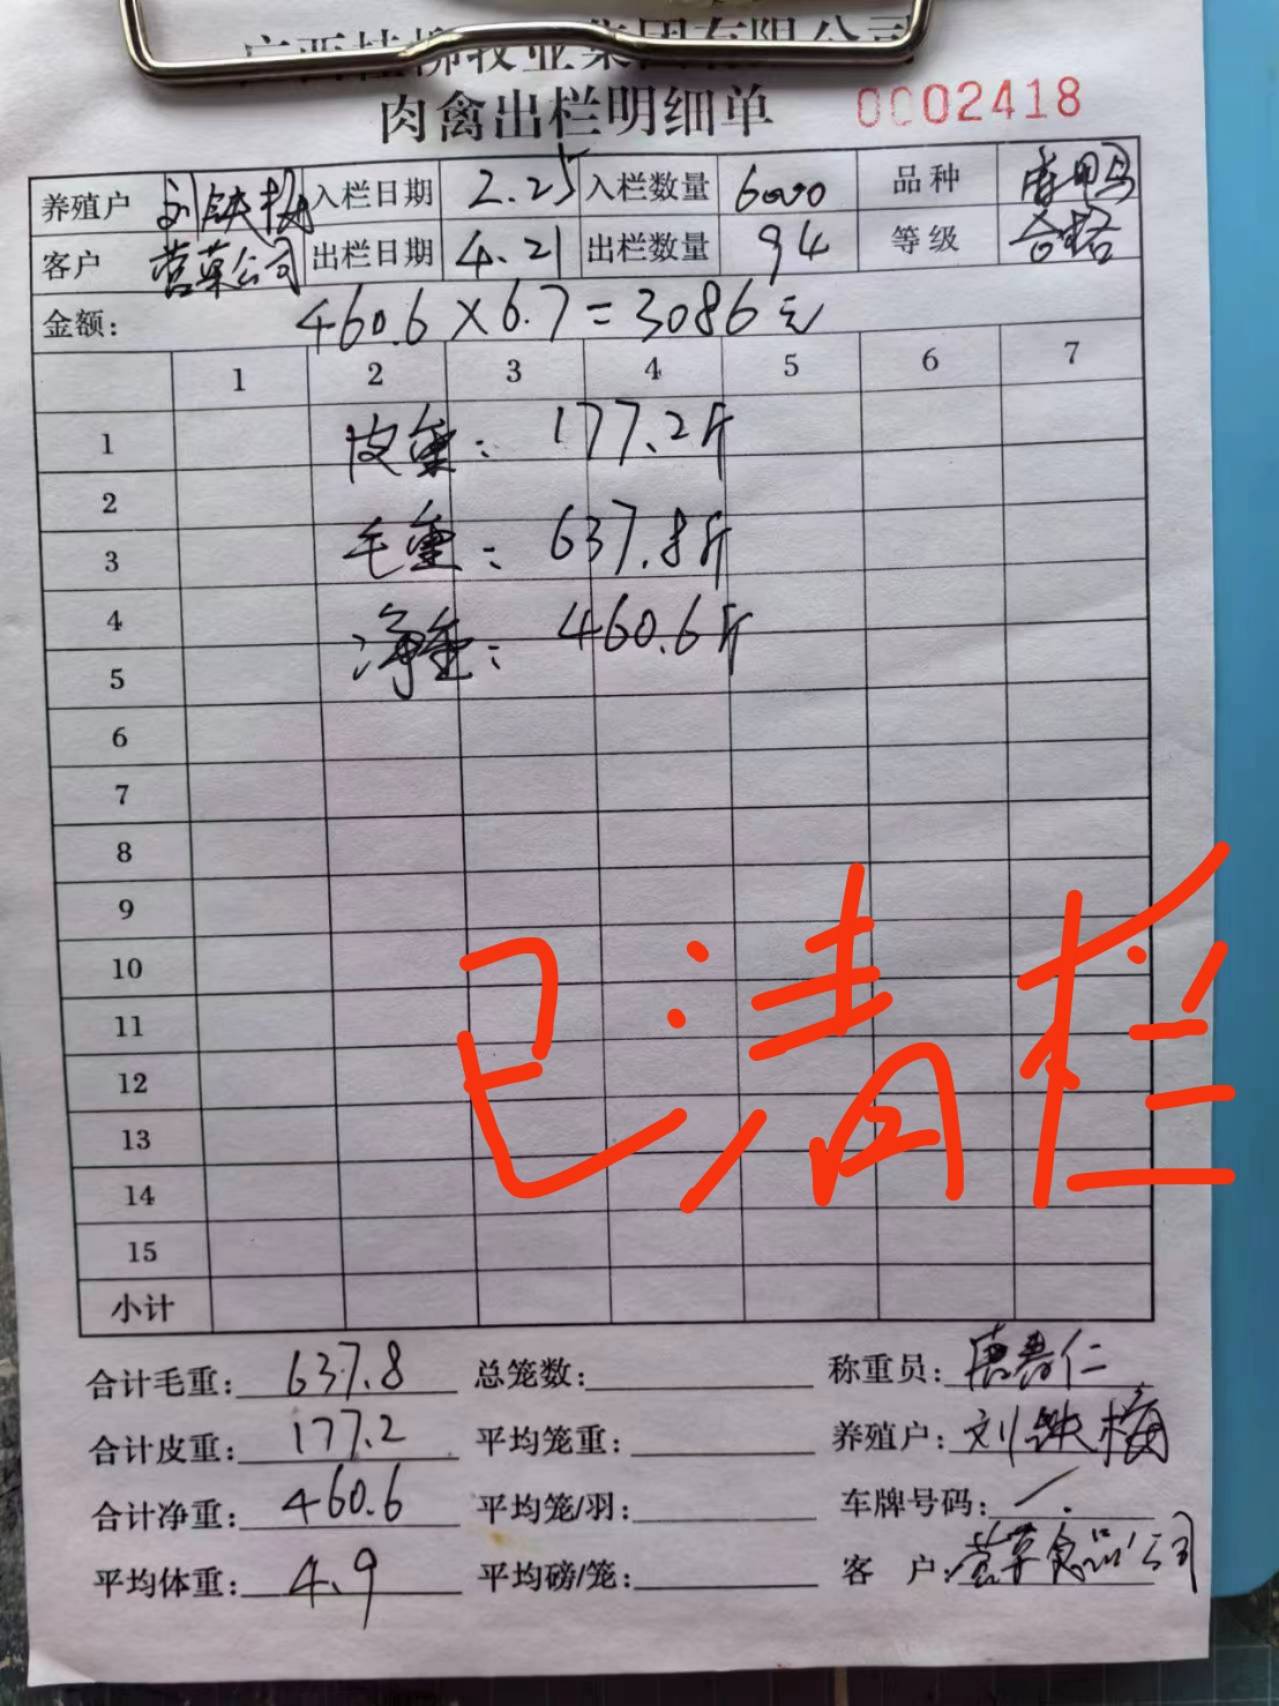 广西桂柳牧业集团有限公司
肉禽出栏明细单 0002418
养殖户 刘铁梅 入栏日期 2.25 入栏数量 6000 品种
客户 营草公司 出栏日期 4.21 出栏数量 94 等级 合格
金额: 460.6×6.7=3086元
1 2 3 4 5 6 7
1 皮重: 177.2斤
2
3 毛重: 637.8斤
4
5 净重: 460.6斤
6
7
8
9
10
11
12
13
14
15
已清栏
小计
合计毛重: 637.8 总笼数: 称重员:
合计皮重: 177.2 平均笼重: 养殖户: 刘铁梅
合计净重: 460.6 平均笼/羽: 车牌号码: /.
平均体重: 4.9 平均磅/笼: 客 户: 营草食品公司